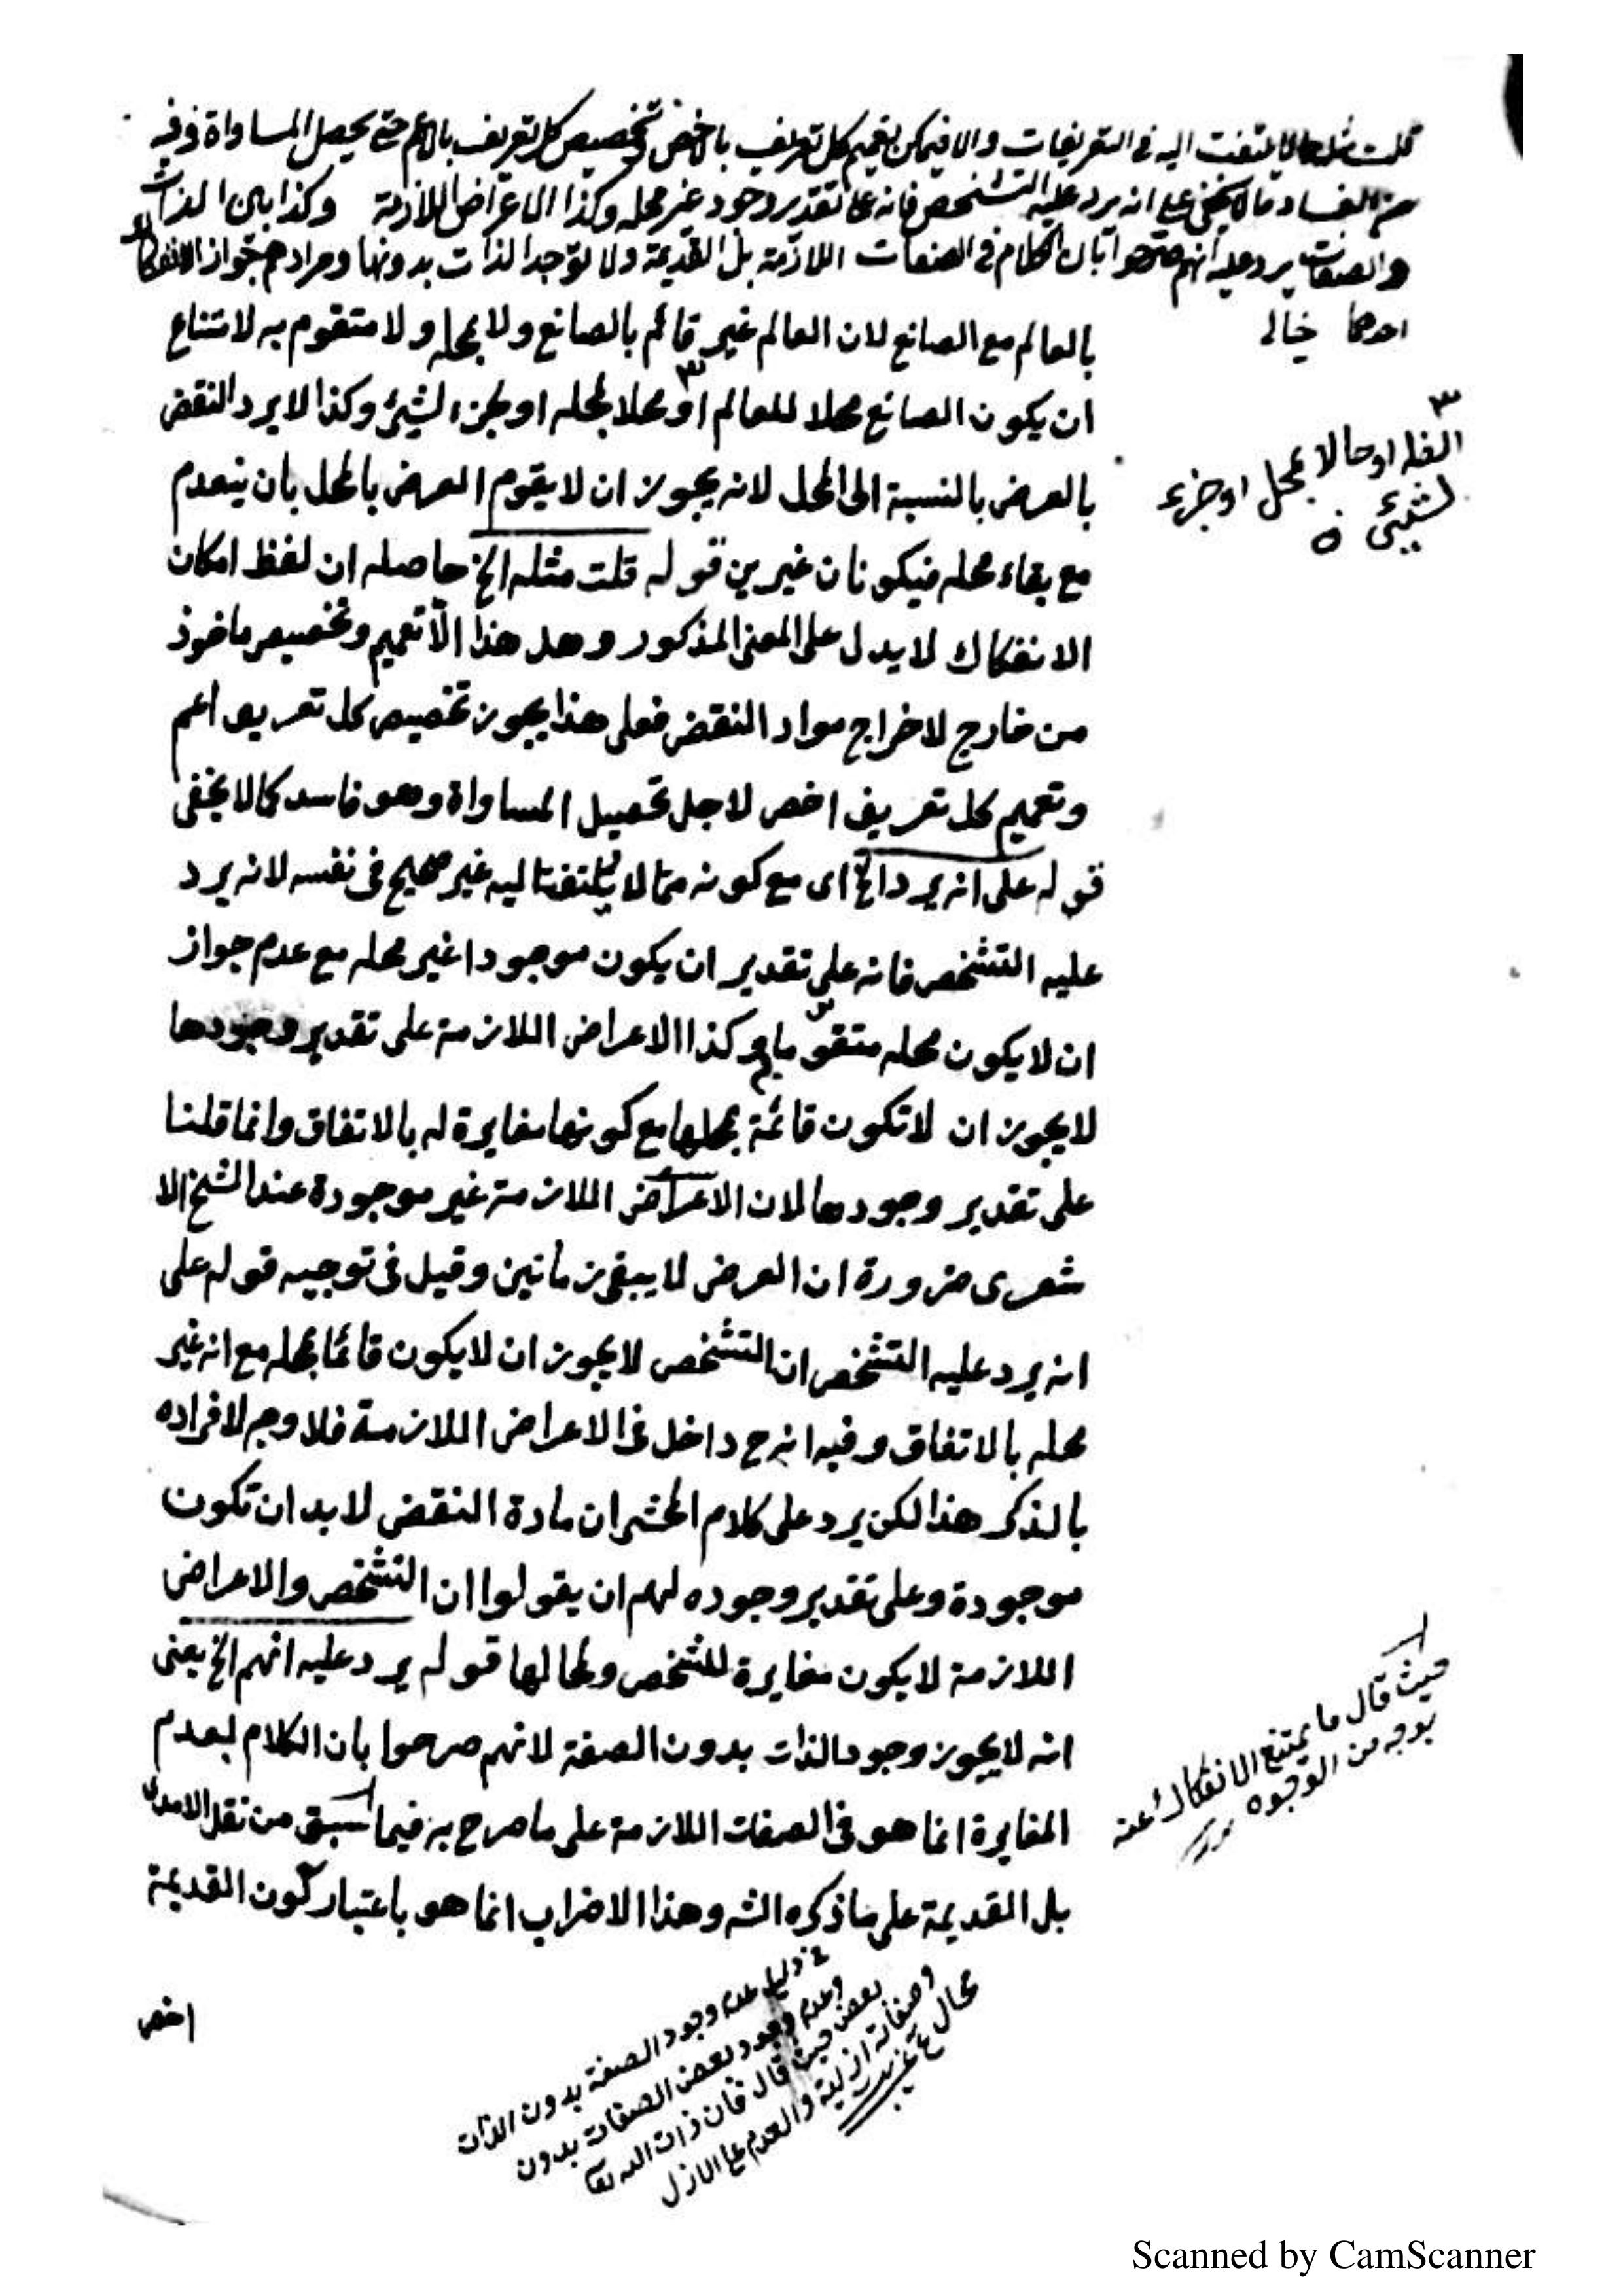 قلت مثله لا يلتفت اليه فى التعريفات والا فيمكن تعميم كل تعريف بالاخص وتخصيص كل تعريف بالاعم حتى يحصل المساواة وفيه
من الفساد ما لا يخفى على انه يرد عليه التشخص فانه على تقدير وجود غير محله وكذا الاعراض اللازمة وكذا بين الذات
والصفات يرد عليه انهم صرحوا بان الكلام فى الصفات اللازمة بل القديمة ولا توجد الذات بدونها ومرادهم جواز الانفكاك
احدهما خيالى
بالعالم مع الصانع لان العالم غير قائم بالصانع ولا بمحله ولا متقوم به لامتناع
ان يكون الصانع محلا للعالم او محلا لمحله او لجزء لشيئ وكذا لا يرد النقض
بالعرض بالنسبة الى المحل لانه يجوز ان لا يقوم العرض بالمحل بان ينعدم
مع بقاء محله فيكونان غيرين قوله قلت مثله الخ حاصله ان لفظ امكان
الانفكاك لا يدل على المعنى المذكور وهل هذا الا تعميم وتخصيص ماخوذ
من خارج لاخراج مواد النقض فعلى هذا يجوز تخصيص كل تعريف اعم
وتعميم كل تعريف اخص لاجل تحصيل المساواة وهو فاسد كما لا يخفى
قوله على انه يرد الخ اى مع كونه مما لا يلتفت اليه غير صحيح فى نفسه لانه يرد
عليه التشخص فانه على تقدير ان يكون موجودا غير محله مع عدم جواز
ان لا يكون محله متقوما به وكذا الاعراض اللازمة على تقدير وجودها
لا يجوز ان لا تكون قائمة بمحلها مع كونها مغايرة له بالاتفاق وانما قلنا
على تقدير وجودها لان الاعراض اللازمة غير موجودة عند الشيخ الا
شعرى ضرورة ان العرض لا يبقى زمانين وقيل فى توجيه قوله على
انه يرد عليه التشخص ان التشخص لا يجوز ان لا يكون قائما بمحله مع انه غير
محله بالاتفاق وفيه انه ح داخل فى الاعراض اللازمة فلا وجه لافراده
بالذكر هذا لكن يرد على كلام المحشى ان مادة النقض لا بد ان تكون
موجودة وعلى تقدير وجوده لهم ان يقولوا ان التشخص والاعراض
اللازمة لا يكون مغايرة للشخص ولمحالها قوله يرد عليه انهم الخ يعنى
انه لا يجوز وجود الذات بدون الصفة لانهم صرحوا بان الكلام بعدم
المغايرة انما هو فى الصفات اللازمة على ما صرح به فيما سبق من نقل الامدى
بل القديمة على ما ذكره الشه وهذا الاضراب انما هو باعتبار كون القديمة
اخص
٣
او حالا بمحل او جزء
لشيئ
حيث قال ما يمتنع الانفكاك عنه
بوجه من الوجوه
دليل عدم وجود الصفة بدون الذات
وعدم وجود بعض الصفات بدون
بعض حيث قال فان ذات الله تعا
وصفاته ازلية والعدم على الازلى
محال